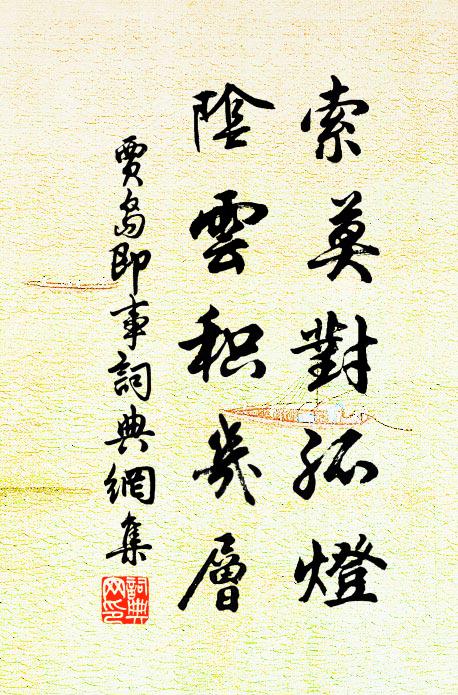 索莫對孤燈
陰雲积幾層
賈島即事詞典網集
詞典網印